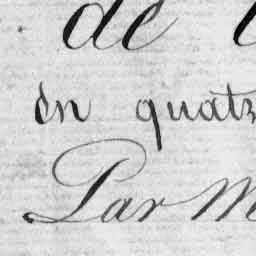 de
en quat
Par M